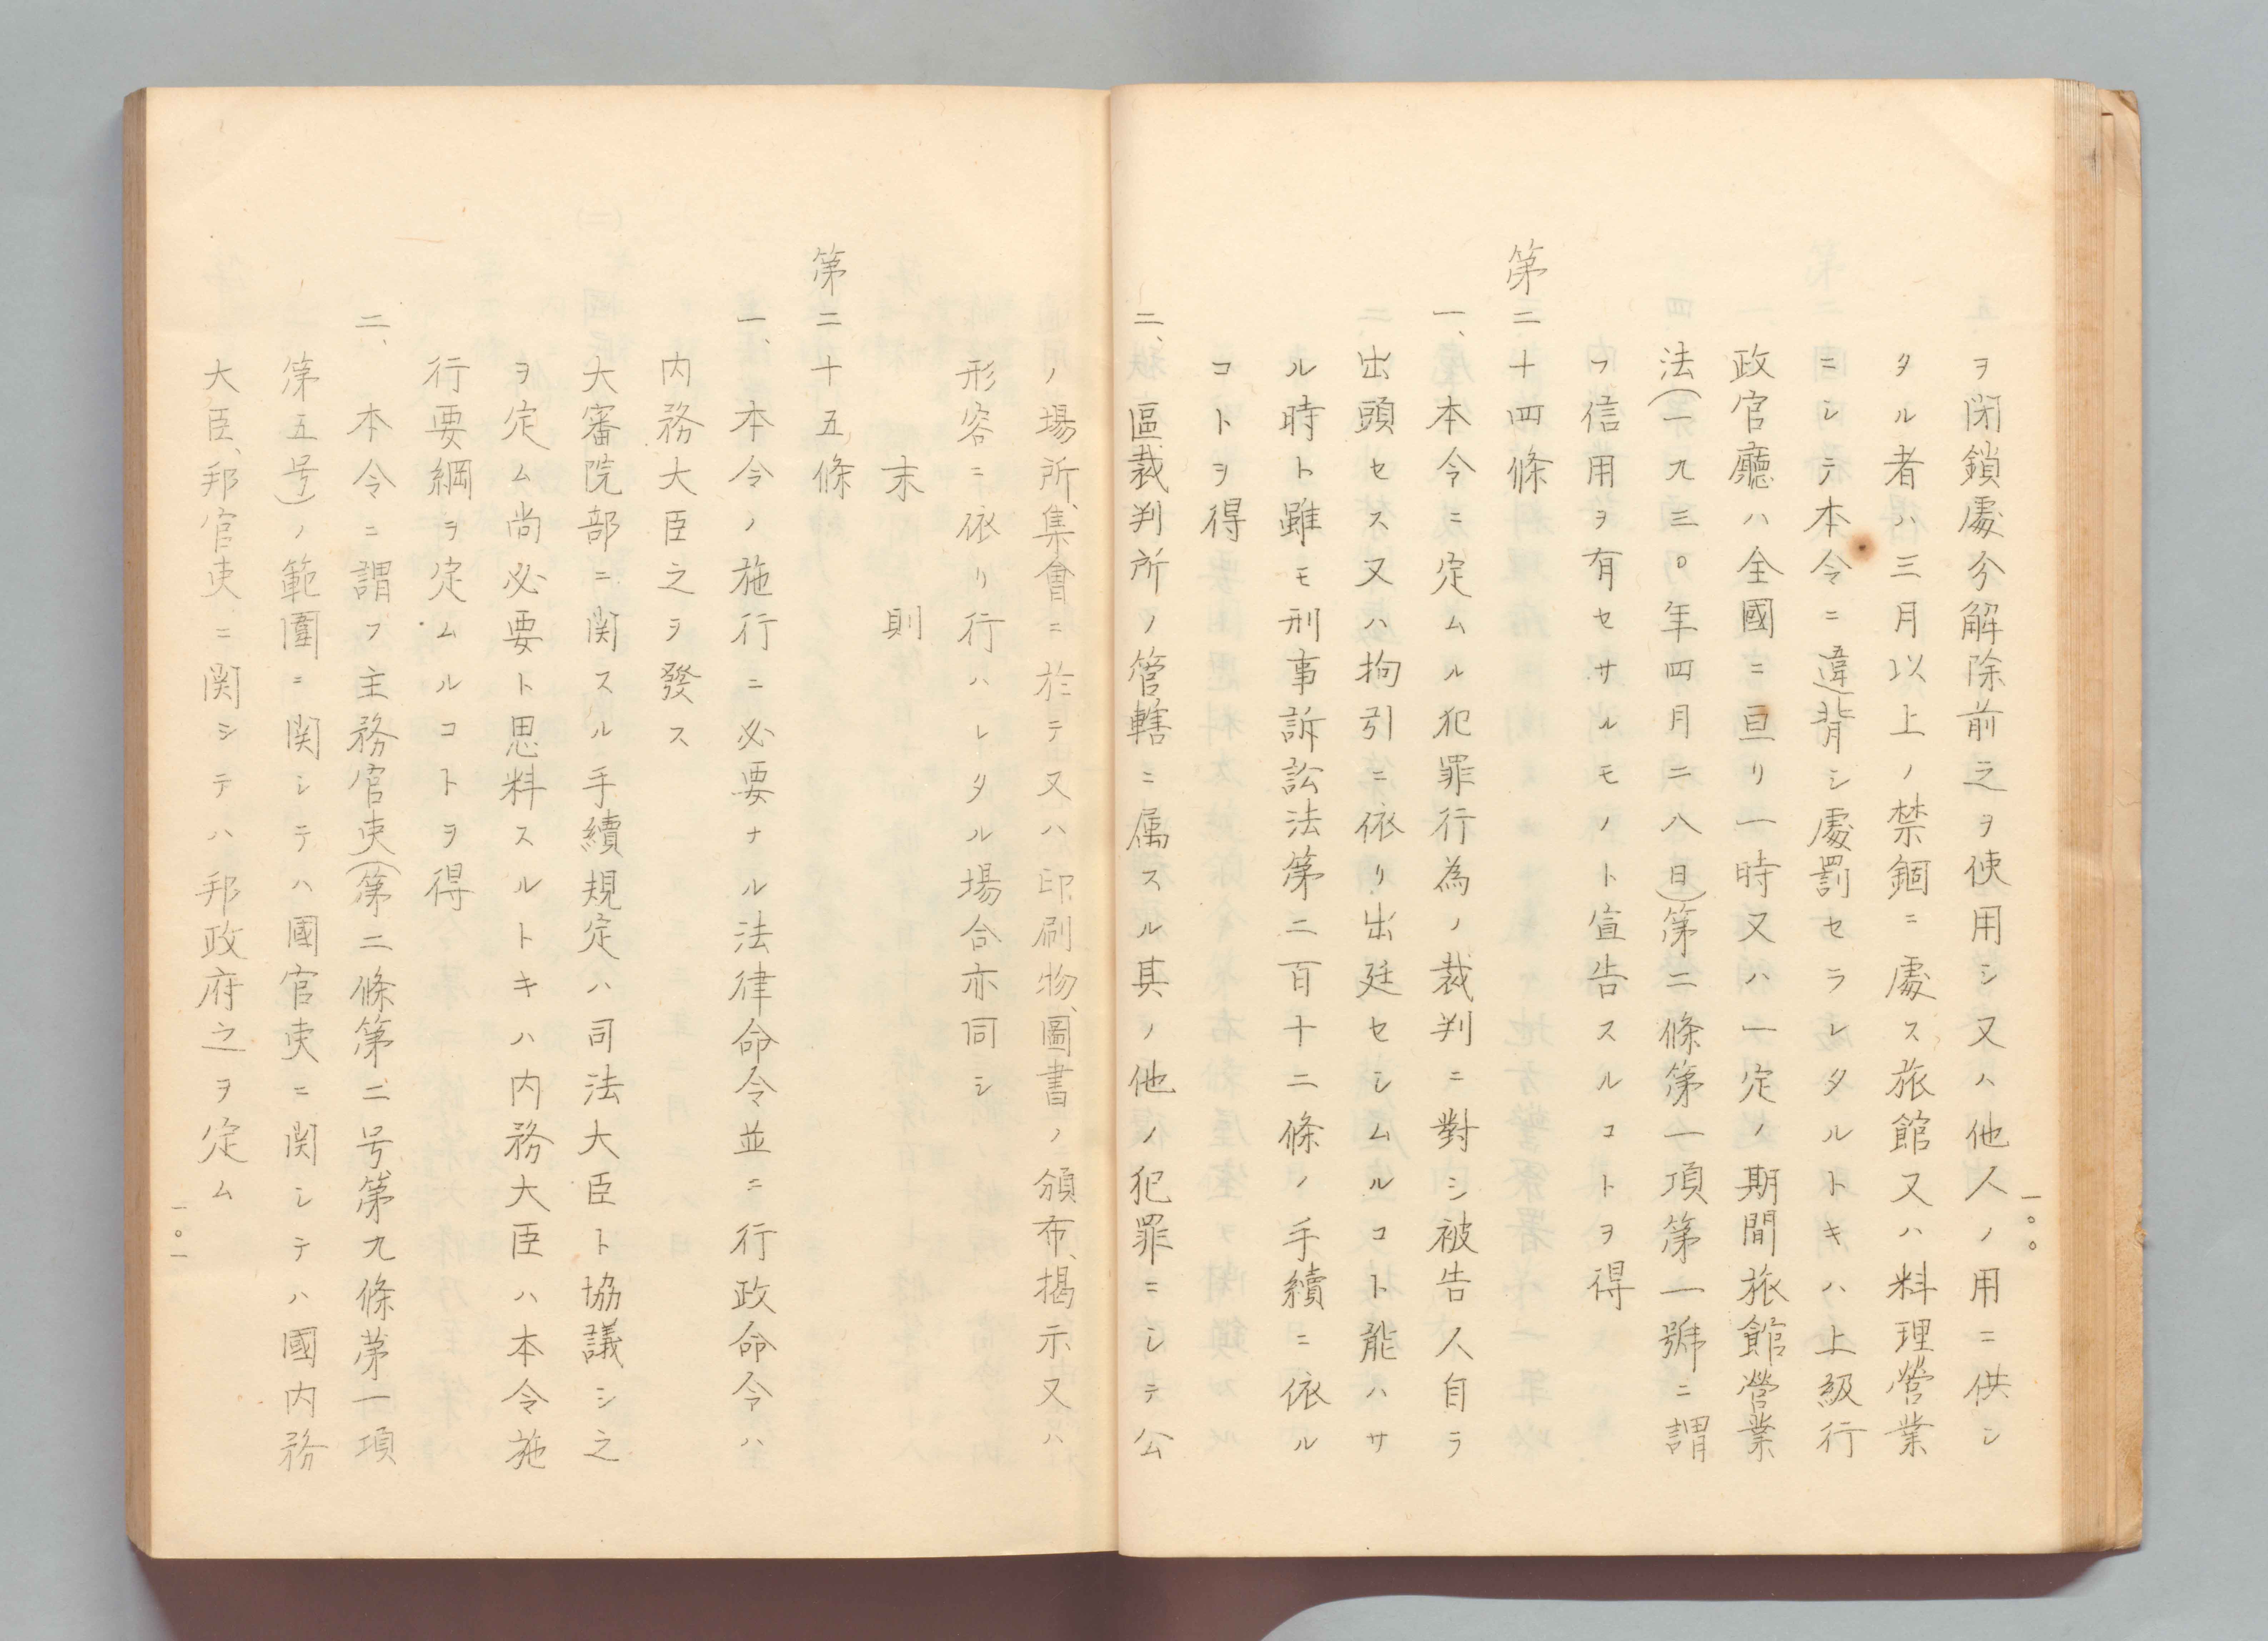 ヲ閉鎖處分解除前之ヲ使用シ又ハ他人ノ用ニ供シ
タル者ハ三月以上ノ禁錮ニ處ス旅館又ハ料理營業
ニシテ本令ニ違背シ處罰セラレタルトキハ上級行
政官廳ハ全國ニ亘リ一時又ハ一定ノ期間旅館營業
法(一九三〇年四月二八日)第二條第一項第一號ニ謂
フ信用ヲ有セサルモノト宣告スルコトヲ得
第二十四條
一、本令ニ定ムル犯罪行為ノ裁判ニ對シ被告人自ラ
出頭セス又ハ拘引ニ依リ出廷セシムルコト能ハサ
ル時ト雖モ刑事訴訟法第二百十二條ノ手續ニ依ル
コトヲ得
二、區裁判所ノ管轄ニ属スル其ノ他ノ犯罪ニシテ公
一〇〇
ノ場所、集會ニ於テ又ハ印刷物、圖書ノ頒布、揭示又ハ
形容ニ依リ行ハレタル場合亦同シ
末則
第二十五條
一、本令ノ施行ニ必要ナル法律命令並ニ行政命令ハ
内務大臣之ヲ發ス
大審院部ニ関スル手續規定ハ司法大臣ト協議シ之
ヲ定ム尚必要ト思料スルトキハ内務大臣ハ本令施
行要綱ヲ定ムルコトヲ得
二、本令ニ謂フ主務官吏(第二條第二号第九條第一項
第五号)ノ範圍ニ関シテハ國官吏ニ関シテハ國内務
大臣、邦官吏ニ関シテハ邦政府之ヲ定ム
一〇一